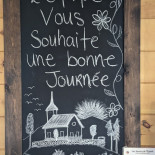 L'équipe
Vous
Souhaite
une bonne
Journée